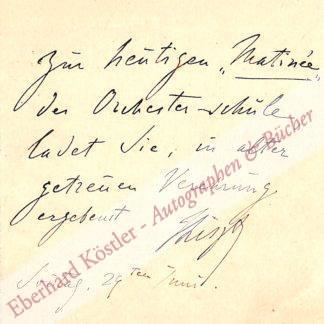 Zur heutigen „Matinée"
der Orchester-schule
ladet Sie, in alter
getreuen Verehrung,
ergebenst
FLiszt
Sontag, 29ten Juni.
Eberhard Köstler - Autographen & Bücher